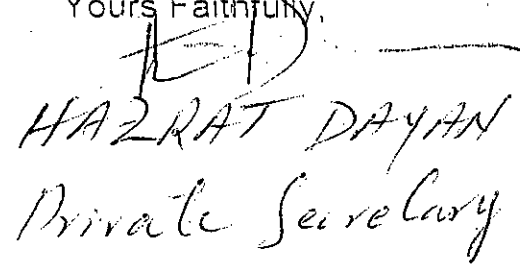 Yours Faithfully,
HAZRAT DAYAN
Private Secretary